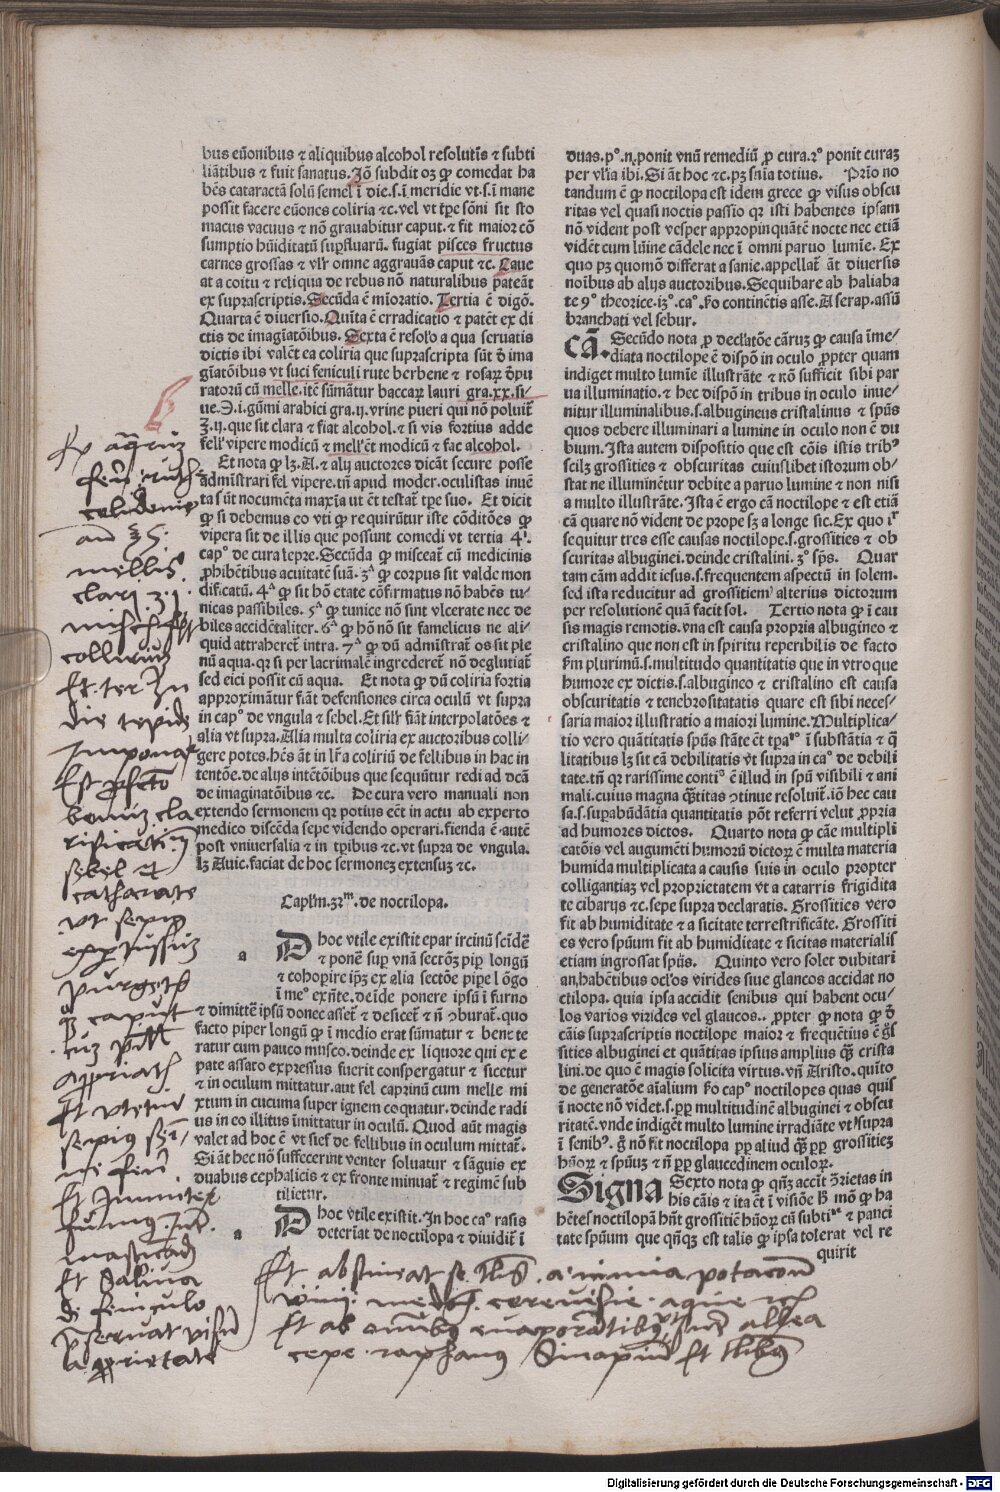 bus eūonibus ⁊ aliquibus alcohol resolutis ⁊ subti
liātibus ⁊ fuit sanatus. Jō subdit oꝫ ꝙ comedat ha
bēs cataractā solū semel ī die .s. ī meridie vt .s. ī mane
possit facere eūones coliria ⁊c. vel vt tpe sōni sit sto
macus vacuus ⁊ nō grauabitur caput. ⁊ fit maior cō
sumptio hūiditatū supfluarū. fugiat pisces fructus
carnes grossas ⁊ vlr omne aggrauās caput ⁊c. Caue
at a coitu ⁊ reliqua de rebus nō naturalibus pateāt
ex suprascriptis. Secūda ē mīoratio. Tertia ē digō.
Quarta ē diuersio. Quīta ē erradicatio ⁊ patēt ex di
ctis de imagīatōibus. Sexta ē resolo a qua seruatis
dictis ibi valēt ea coliria que suprascripta sūt ī ima
gīatōibus vt suci feniculi rute berbene ⁊ rosaꝝ dpu
ratorū cū melle. itē sūmātur baccaꝝ lauri gra. xx. si-
ue Ʒ. i. gūmi arabici gra. ij. vrine pueri qui nō poluit
Ʒ. ij. que sit clara ⁊ fiat alcohol. ⁊ si vis fortius adde
fell vipere modicū ⁊ mell et modicū ⁊ fac alcohol.
Et nota ꝙ lꝫ. A. ⁊ alij auctores dicāt secure posse
admīstrari fel vipere. tn apud moder. oculistas inuē
ta sūt nocumēta maxīa ut ēt testat tpe suo. Et dicit
ꝙ si debemus eo vti ꝙ requirūtur iste cōditōes ꝙ
vipera sit de illis que possunt comedi vt tertia 4ⁱ.
capº de cura lepre. Secūda ꝙ misceat cū medicinis
prohibētibus acuitatē suā. 3ª ꝙ corpus sit valde mon
dificatū. 4ª ꝙ sit hō etate cōfirmatus nō habēs tu-
nicas passibiles. 5ª ꝙ tunice nō sint vlcerate nec de
biles accidētaliter. 6ª ꝙ hō nō sit famelicus ne ali-
quid attraheret intra. 7ª ꝙ dū admistrat os sit ple
nū aqua. qr si per lacrimalē ingrederet nō deglutiat
sed eici possit cū aqua. Et nota ꝙ dū coliria fortia
approximātur fiāt defensiones circa oculū vt supra
in capº de vngula ⁊ sebel. Et silr fiāt interpolatōes ⁊
alia vt supra. Alia multa coliria ex auctoribus colli-
gere potes. hēs āt in lra coliriū de fellibus in hac in
tentōe. de alijs intētōibus que sequūtur redi ad dcā
de imaginatōibus ⁊c. De cura vero manuali non
extendo sermonem qr potius ect in actu ab experto
medico discēda sepe videndo operari. fienda ē autē
post vniuersalia ⁊ in tpibus ⁊c. vt supra de vngula.
lꝫ Auic. faciat de hoc sermonem extensum ⁊c.
Caplm. 32ᵐ. de noctilopa.
Ad hoc vtile existit epar ircinū scīdē
⁊ ponē sup vnā sectōꝫ pip longū
⁊ cohopire ipꝫ ex alia sectōe pipe lōgo
ī meº exnte. deīde ponere ipsū ī furno
⁊ dimittē ipsū donec asset ⁊ desicet ⁊ nō ↄburat. quo
facto piper longū ꝙ ī medio erat sūmatur ⁊ bene te
ratur cum pauco musco. deinde ex liquore qui ex e
pate assaro expressus fuerit conspergatur ⁊ sicetur
⁊ in oculum mittatur. aut fel caprinū cum melle mi
xtum in cucuma super ignem coquatur. deinde radi
us in eo illitus īmittatur in oculū. Quod aūt magis
valet ad hoc ē vt sief de fellibus in oculum mittat.
Si āt hec nō suffecerint venter soluatur ⁊ sāguis ex
duabus cephalicis ⁊ ex fronte minuat ⁊ regimē sub
tilietur.
Ad hoc vtile existit. In hoc caº rasis
deteriat de noctilopa ⁊ diuidit ī
duas. pº. n. ponit vnū remediū p cura. 2º ponit curaꝫ
per vlia ibi. Si āt hoc ⁊c. pꝫ snīa totius. Prīo no
tandum ē ꝙ noctilopa est idem grece ꝙ visus obscu
ritas vel quasi noctis passio qr isti habentes ipsam
nō vident post vesper appropinquātē nocte nec etiā
vidēt cum lūine cādele nec ī omni paruo lumīe. Ex
quo pꝫ quomō differat a sanie. appellat āt diuersis
noībus ab alijs auctoribus. Sequibare ab haliaba
te 9º theorice. 13º. caº. ko continētis asse. A serap. assū
branchati vel sebur.
Cā. Secūdo nota p declatōe cāruꝫ ꝙ causa īme/
diata noctilope ē dispō in oculo ppter quam
indiget multo lumīe illustrāte ⁊ nō sufficit sibi par
ua illuminatio. ⁊ hec dispō in tribus in oculo inue/
nitur illuminalibus. s. albugineus cristalinus ⁊ spūs
quos debere illuminari a lumine in oculo non ē du
bium. Ista autem dispositio que est cōis istis tribꝰ
scilꝫ grossities ⁊ obscuritas cuiuslibet istorum ob-
stat ne illuminētur debite a paruo lumine ⁊ non nisi
a multo illustrāte. Ista ē ergo cā noctilope ⁊ est etiā
cā quare nō vident de prope sꝫ a longe sic. Ex quo īr
sequitur tres esse causas noctilope. s. grossities ⁊ ob
scuritas albuginei. deinde cristalini. 3º spūs. Quar
tam cām addit iesus. s. frequentem aspectū in solem.
sed ista reducitur ad grossitiem alterius dictorum
per resolutionē quā facit sol. Tertio nota ꝙ ī cau
sis magis remotis. vna est causa propria albugineo ⁊
cristalino que non est in spiritu reperibilis de facto
km plurimū. s. multitudo quantitatis que in vtroque
humore ex dictis. s. albugineo ⁊ cristalino est causa
obscuritatis ⁊ tenebrositatatis quare est sibi neces/
saria maior illustratio a maiori lumine. Multiplica/
tio vero quātitatis spūs stāte ēt tpatº ī substātia ⁊ q̄
litatibus lꝫ sit cā debilitatis vt supra in caº de debili
tate. tn qr rarissime contiº ē illud in spū visibili ⁊ ani
mali. cuius magna q̄titas ↄtinue resoluit. iō hec cau
sa. s. supabūdātia quantitatis pōt referri velut propria
ad humores dictos. Quarto nota ꝙ cāe multipli
catōis vel augumēti humorū dictoꝝ ē multa materia
humida multiplicata a causis suis in oculo propter
colligantiaꝫ vel proprietatem vt a catarris frigidita
te cibarijs ⁊c. sepe supra declaratis. Grossities vero
fit ab humiditate ⁊ a sicitate terrestrificāte. Grossiti
es vero spūum fit ab humiditate ⁊ sicitas materialis
etiam ingrossat spūs. Quinto vero solet dubitari
an. habētibus oclos virides siue glancos accidat no
ctilopa. quia ipsa accidit senibus qui habent ocu/
los varios virides vel glaucos.. ppter ꝙ nota ꝙ d
cāis suprascriptis noctilope maior ⁊ frequētius ē gs
sities albuginei et quātitas ipsius amplius q̄ crista
lini. de quo ē magis solicita virtus. vn Aristo. quīto
de generatōe aīalium ko capº noctilopes quas quis
ī nocte nō videt. s. pp multitudinē albuginei ⁊ obscu
ritatē. vnde indigēt multo lumine irradiāte vt supra
ī senibꝰ. g nō fit noctilopa pp aliud q̄ pp grossitieꝫ
hūoꝝ ⁊ spūuꝫ ⁊ n pp glaucedinem oculoꝝ.
Signa Sexto nota ꝙ qnꝫ accit vrietas in
his cāis ⁊ ita ēt ī visiōe ꝙ mō ꝙ ha
bētes noctilopā hnt grossitiē hūoꝝ cū subti ⁊ pauci
tate spūum que qnꝫ est talis ꝙ ipsa tolerat vel re
quirit
mellis
clari Ʒ. j.
colliriuꝫ
Et ter in
die tepide
Imponat
bonum cla
sebel et
catharacte
vt sepius
Et Saliua
de feniculo
pseruat visū
Et abstineat
vini cereuisie aque
Et ab omībus euaporātibus allea
cepe raphanus Sinapium Et
Digitalisierung gefördert durch die Deutsche Forschungsgemeinschaft - DFG